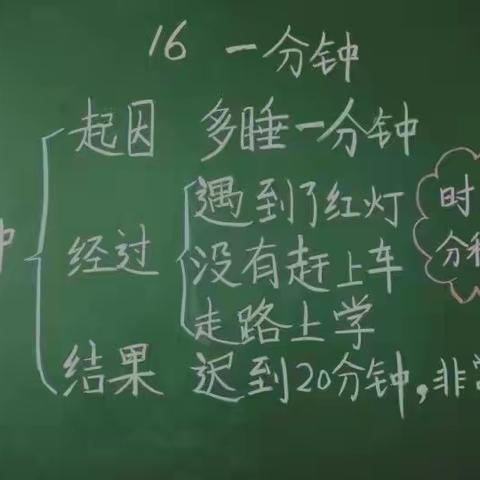 16 一分钟
起因 多睡一分钟
遇到了红灯
经过 没有赶上车
走路上学
结果 迟到20分钟，非
时
分